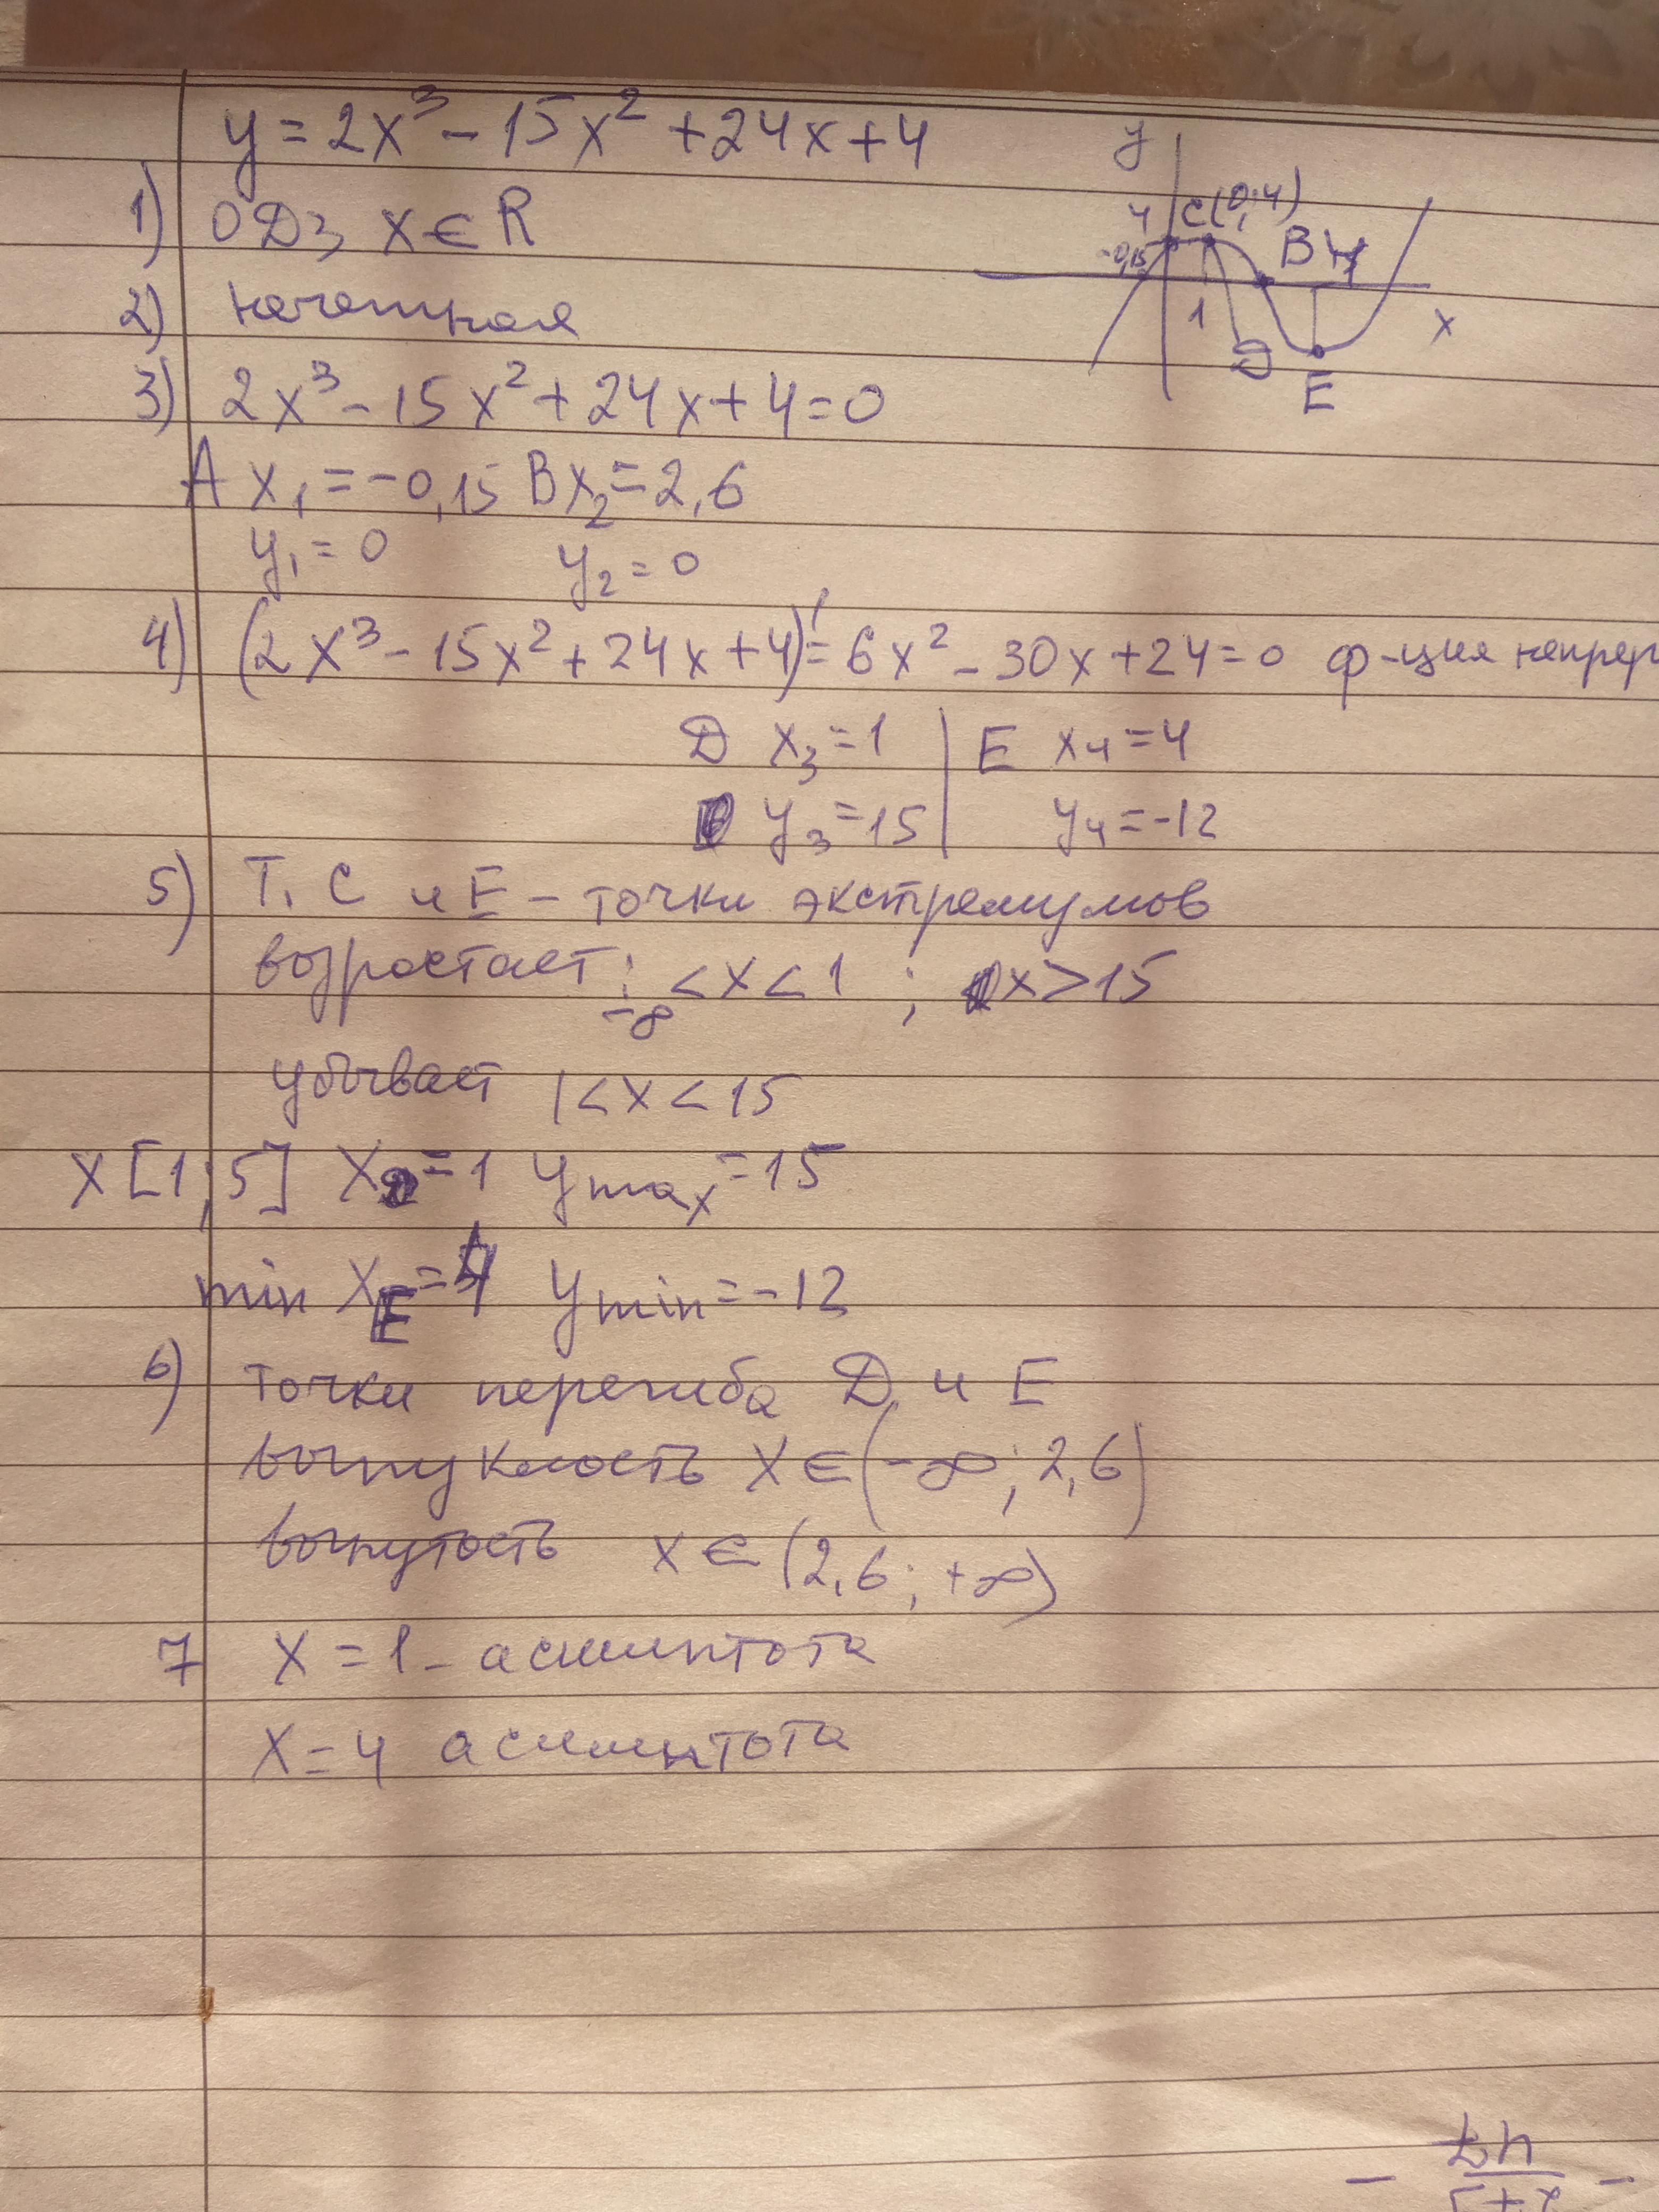 y = 2x³ - 15x² + 24x + 4
1) ОДЗ x ∈ R
2) нечетная
3) 2x³ - 15x² + 24x + 4 = 0
A x₁ = -0,15 B x₂ = 2,6
y₁ = 0 y₂ = 0
4) (2x³ - 15x² + 24x + 4)' = 6x² - 30x + 24 = 0 ф-ция непрер
Д x₃ = 1 | E x₄ = 4
y₃ = 15 | y₄ = -12
5) Т. С и Е - точки экстремумов
возростает: -∞ < x < 1 ; x > 15
убывает 1 < x < 15
x [1; 5] x = 1 y max = 15
min x E = 4 y min = -12
6) точки перегиба Д и Е
выпуклость x ∈ (-∞; 2,6)
вогнутость x ∈ (2,6; +∞)
7 x = 1 - асимптота
x = 4 асимптота
y
4 C(0; 4)
-0,15
B
1
x
Д
E